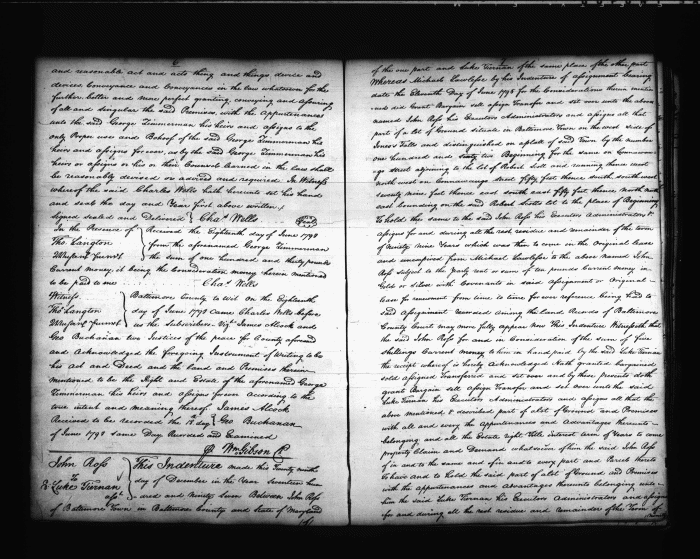 and reasonable act and acts thing and things device and
devices Conveyance and Conveyances in the law whatsoever for the
further better and more perfect granting conveying and assuring
of all and singular the said Premises with the Appurtenances
unto the said George Zimmerman his heirs and assigns to the
only Proper use and Behoof of the said George Zimmerman his
heirs and assigns forever, as by the said George Zimmerman his
heirs or assigns or his or their Counsel learned in the laws shall
be reasonably devised or advised and required. In Witness
whereof the said Charles Wells hath hereunto set his hand
and seal the day and Year first above written
signed sealed and Delivered Chas Wells
In the Presence of Received the Eighteenth day of June 1798
Thos Langton from the aforenamed George Zimmerman
the sum of one hundred and thirty pounds
Current money it being the Consideration money herein mentioned
to be paid to me Chas Wells
Witness Baltimore County to wit on the Eighteenth
Thos Langton day of June 1798 Came Charles Wells before
us the Subscribers Vizt James Alcock and
Geo Buchanan two Justices of the peace for County aforesaid
and Acknowledged the foregoing Instrument of Writing to be
his Act and Deed and the Land and Premises therein
mentioned to be the Right and Estate of the aforenamed George
Zimmerman his heirs and assigns forever according to the
true intent and meaning thereof James Alcock
Received to be recorded the 18 day Geo Buchanan
of June 1798 Same Day Recorded and Examined
Wm Gibson Ck
John Ross This Indenture made this Twenty ninth
to day of December in the Year Seventeen hun
Luke Tiernan dred and Ninety seven Between John Ross
of Baltimore Town in Baltimore County and State of Maryland
of the one part and Luke Tiernan of the same place of the other part
Whereas Michael Lawless by his Indenture of assignment bearing
date the Eleventh Day of June 1795 for the Considerations therein mentio
ned did Grant Bargain sell assign Transfer and set over unto the above
named John Ross his Executors Administrators and assigns all that
part of a lot of Ground situate in Baltimore Town on the West Side of
Jones's Falls and distinguished on a plat of said Town by the number
one hundred and sixty two Beginning for the same on Commerce
street adjoining to the lot of Robert and running thence west
north west on Commerce street fifty feet thence south south west
seventy nine feet thence east south east fifty feet thence north north
east bounding on the said Robert lot to the place of Beginning
To hold the same to the said John Ross his Executors Administrators &
assigns for and during all the rest residue and remainder of the term
of Ninety Nine Years which was then to come in the Original lease
and unexpired from Michael Lawless to the above named John
Ross subject to the Yearly rent or sum of ten pounds Current money in
Gold or silver with Covenants in said assignment or Original
lease for renewment from time to time for ever reference being had to
said assignment recorded among the land Records of Baltimore
County Court may more fully appear Now This Indenture Witnesseth that
he the said John Ross for and in Consideration of the sum of five
shillings Current money to him in hand paid by the said Luke Tiernan
the receipt whereof is hereby Acknowledged Hath granted bargained
sold assigned Transferred and set over and by these presents doth
grant Bargain sell assign Transfer and set over unto the said
Luke Tiernan his Executors Administrators and assigns all that the
above mentioned & described part of a lot of Ground and Premises
with all and every the Appurtenances and Advantages thereunto
belonging and all the Estate right Title interest term of Years to come
property Claim and Demand whatsoever of him the said John Ross
of in and to the same and of in and to every part and Parcel thereof
To have and to hold the said part of a lot of Ground and Premises
with the appurtenances and advantages thereunto belonging unto
him the said Luke Tiernan his Executors Administrators and assigns
for and during all the rest residue and remainder of the Term of